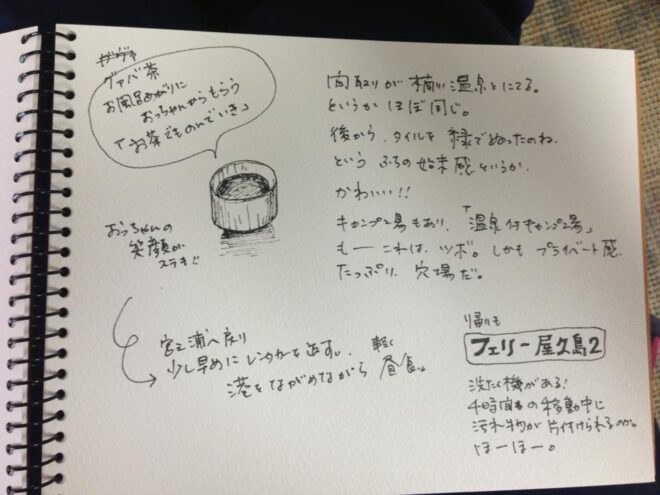 グァバ茶
お風呂あがりに
おっちゃんからもらう
「お茶でものんでいき」
おっちゃんの
笑顔が
ステキ!!
間取りが楠川温泉とにてる。
というかほぼ同じ。
後から、タイルを緑でぬったのね
という ふちの始末感というか
かわいい!!
キャンプ場もあり、「温泉付キャンプ場」
もー これは、ツボ。しかも プライベート感
たっぷり、穴場だ。
宮之浦へ戻り
少し早めにレンタカーを返す。
港をながめながら 軽く昼食。
帰りも
フェリー屋久島2
洗たく機がある!
4時間の移動中に
汚れ物が片付けられるのか。
ほーほー。